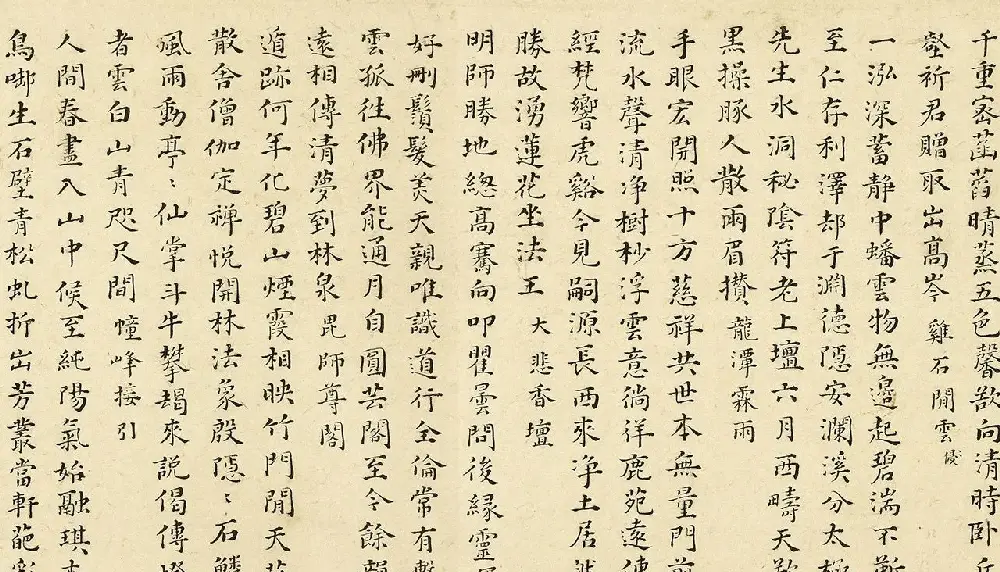 千重密蓝舊晴蒸五色馨欲向清時卧丘
壑祈君贈取出高岑 雞石閒雲
一泓深蓄静中蟠雲物無邊起碧湍不斬
至仁存利澤却于渊德隱安瀾溪分太極
先生水洞秘陰符老上壇六月西疇天
黑操豚人散雨眉攢 龍潭霖雨
手眼宏開照十方慈祥共世本無量門前
流水聲清净樹杪浮雲意徜徉鹿苑遠傳
經梵響虎谿今見嗣源長西來净土居
勝故湧蓮花坐法王 大悲香壇
明師勝地總高騫向叩瞿曇問後緣靈
好刪鬚髮美天親唯識道行全倫常有
雲孤往佛界能通月自圓芸閣至今餘
遠相傳清夢到林泉 毘師尊閣
遁跡何年化碧山煙霞相映竹門閒天花
散舍僧伽定禅悦開林法象殷隱〻石
風雨動亭〻仙掌斗牛攀朅來説偈傳
者雲白山青咫尺間 幢峰接引
人間春盡入山中候至純陽氣始融琪
鳥啣生石壁青松虬折出芳叢當軒葩